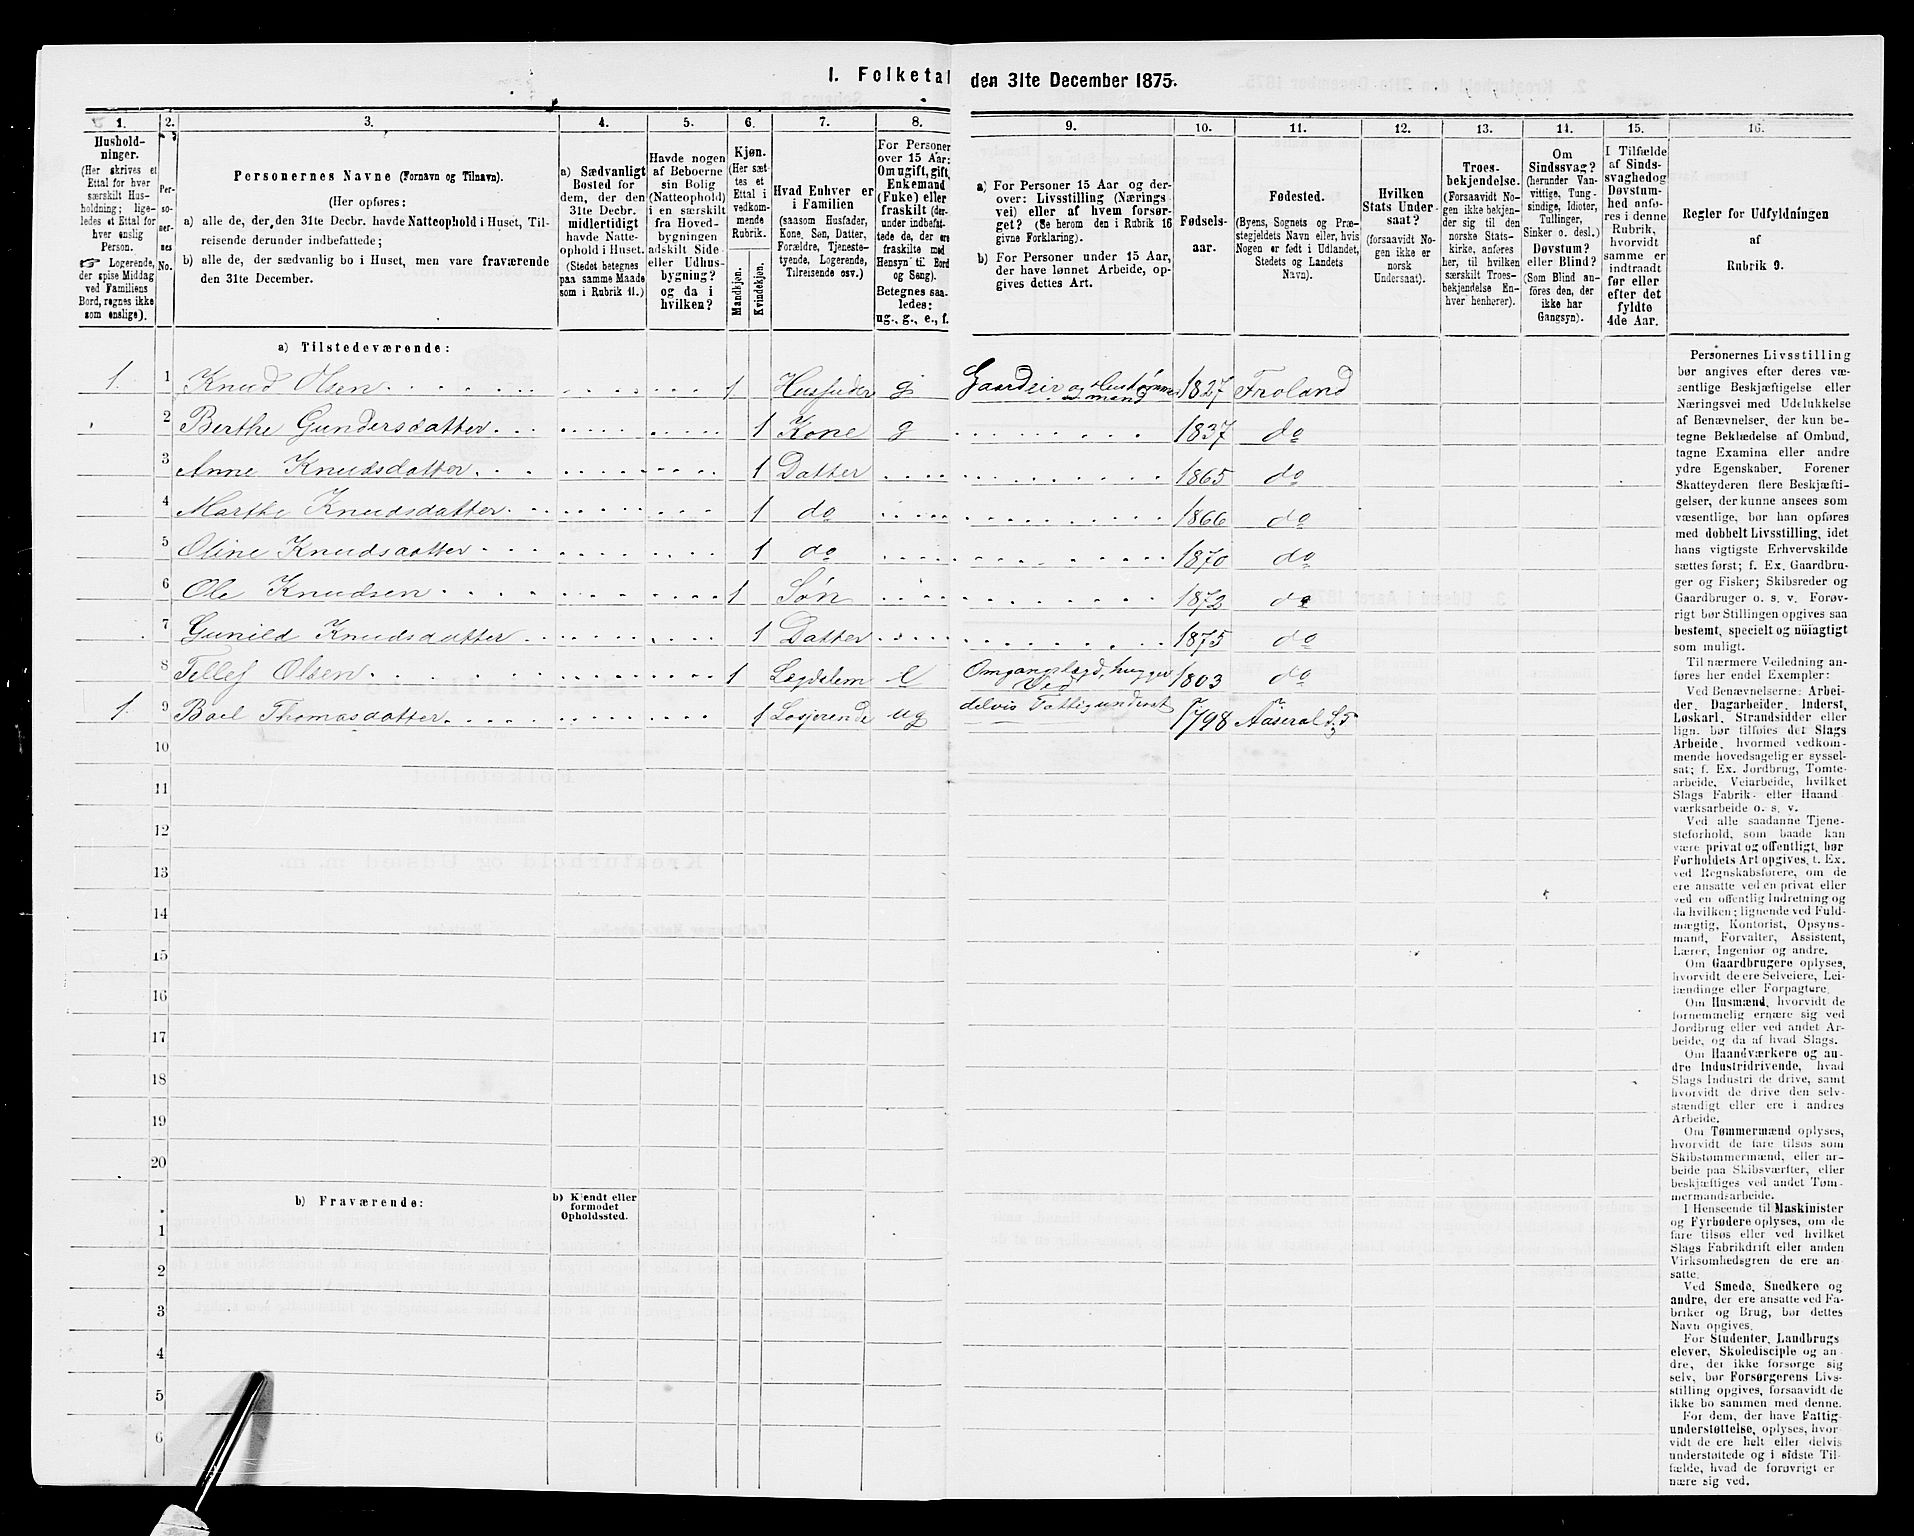 1. Folketal den 31te December 1875.
1. 2. 3. 4. 5. 6. 7. 8. 9. 10. 11. 12. 13. 14. 15. 16.
Hushold-
ninger.
(Her skrives et
Ettal for hver
særskilt Hus-
holdning; lige-
ledes et Ettal for
hver enslig
Person.
☞ Logerende,
der spise Middag
ved Familiens
Bord, regnes ikke
som enslige).
Per-
so-
ner-
nes
No.
Personernes Navne (Fornavn og Tilnavn).
(Her opføres:
a) alle de, der den 31te Decbr. havde Natteophold i Huset, Til-
reisende derunder indbefattede;
b) alle de, der sædvanlig bo i Huset, men vare fraværende
den 31te December.
a) Sædvanligt
Bosted for
dem, der den
31te Decbr.
midlertidigt
havde Natte-
ophold i Huset.
(Stedet betegnes
paa samme Maade
som i Rubrik 11.)
Havde nogen
af Beboerne
sin Bolig
(Natteophold)
i en særskilt
fra Hoved-
bygningen
adskilt Side-
eller Udhus-
bygning?
og da i
hvilken?
Kjøn.
(Her sæt-
tes et
Ettal i
vedkom-
mende
Rubrik.
Mandkjøn.
Kvindekjøn.
Hvad Enhver er
i Familien
(saasom Husfader,
Kone, Søn, Datter,
Forældre, Tjeneste-
tyende, Logerende,
Tilreisende osv.)
For Personer
over 15 Aar:
Om ugift, gift,
Enkemand
(Enke) eller
fraskilt (der-
under indbefat-
tede de, der ere
fraskilte med
Hensyn til Bord
og Seng).
Betegnes saa-
ledes:
ug., g., e., f.
a) For Personer 15 Aar og der-
over: Livsstilling (Nærings-
vei) eller af hvem forsør-
get? (Se herom den i Rubrik 16
givne Forklaring).
b) For Personer under 15 Aar,
der have lønnet Arbeide, op-
gives dettes Art.
Fødsels-
aar.
Fødested.
(Byens, Sognets og Præ-
stegjeldets Navn eller, hvis
Nogen er født i Udlandet,
Stedets og Landets
Navn).
Hvilken
Stats Under-
saat?
(forsaavidt No-
gen ikke er
norsk
Undersaat).
Troes-
bekjendelse.
(Forsaavidt No-
gen ikke bekjen-
der sig til den
norske Stats-
kirke, anføres
her, til hvilken
særskilt Troes-
bekjendelse En-
hver henhører).
Om
Sindssvag?
(herunder Van-
vittige, Tung-
sindige, Idioter,
Tullinger,
Sinker o. desl.)
Døvstum?
eller Blind?
(Som Blind an-
føres den, der
ikke har
Gangsyn).
I Tilfælde
af Sinds-
svaghed og
Døvstum-
hed anfø-
res i denne
Rubrik,
hvorvidt
samme er
indtraadt
før eller
efter det
fyldte
4de Aar.
Regler for Udfyldningen
af
Rubrik 9.
a) Tilstedeværende:
1. 1 Knud Olsen 1 Husfader g Gaardeier og Hustømmermand 1827 Froland
2 Berthe Gundersdatter 1 Kone g 1837 do
3 Anne Knudsdatter 1 Datter 1865 do
4 Marthe Knudsdatter 1 do 1866 do
5 Oline Knudsdatter 1 do 1870 do
6 Ole Knudsen 1 Søn 1872 do
7 Gunild Knudsdatter 1 Datter 1875 do
8 Tellef Olsen 1 Lægdelem e Omgangslægd, hugger Ved 1803 do
1. 9 Boel Thomasdatter 1 Losjerende ug delvis Fattigunderst 1798 Aaseral
10
11
12
13
14
15
16
17
18
19
20
b) Fraværende:
b) Kjendt eller
formodet
Opholdssted.
1
2
3
4
5
6
Personernes Livsstilling
bør angives efter deres væ-
sentlige Beskjæftigelse eller
Næringsvei med Udelukkelse
af Benævnelser, der kun be-
tegne Beklædelse af Ombud,
tagne Examina eller andre
ydre Egenskaber. Forener
Skatteyderen flere Beskjæfti-
gelser, der kunne ansees som
væsentlige, bør han opføres
med dobbelt Livsstilling, idet
hans vigtigste Erhvervskilde
sættes først; f. Ex. Gaardbru-
ger og Fisker; Skibsreder og
Gaardbruger o. s. v. Forøv-
rigt bør Stillingen opgives saa
bestemt, specielt og nöiagtigt
som muligt.
Til nærmere Veiledning an-
føres her endel Exempler:
Ved Benævnelserne: Arbei-
der, Dagarbeider, Inderst,
Løskarl, Strandsidder eller
lign. bør tilføies det Slags
Arbeide, hvormed vedkom-
mende hovedsagelig er syssel-
sat; f. Ex. Jordbrug, Tomte-
arbeide, Veiarbeide, hvilket
Slags Fabrik- eller Haand
værksarbeide o. s. v.
Ved alle saadanne Tjene-
steforhold, som baade kan
være privat og offentligt, bør
Forholdets Art opgives, t. Ex.
ved Regnskabsførere, om de
ere ansatte ved en privat eller
ved en offentlig Indretning og
da hvilken; lignende ved Fuld-
mægtig, Kontorist, Opsyns-
mand, Forvalter, Assistent,
Lærer, Ingeniør og andre.
Om Gaardbrugere oplyses,
hvorvidt de ere Selveiere, Lei-
lændinge eller Forpagtere.
Om Husmænd, hvorvidt de
fornemmelig ernære sig ved
Jordbrug eller ved andet Ar-
beide, og da af hvad Slags.
Om Haandværkere og an-
dre Industridrivende, hvad
Slags Industri de drive, samt
hvorvidt de drive den selv-
stændigt eller ere i andres
Arbeide.
Om Tømmermænd oplyses,
hvorvidt de fare tilsøs som
Skibstømmermænd, eller ar-
beide paa Skibsværfter, eller
beskjæftiges ved andet Tøm-
mermandsarbeide.
I Henseende til Maskinister
og Fyrbødere oplyses, om de
fare tilsøs eller ved hvilket
Slags Fabrikdrift eller anden
Virksomhedsgren de ere an-
satte.
Ved Smede, Snedkere og
andre, der ere ansatte ved Fa-
briker og Brug, bør dettes
Navn opgives.
For Studenter, Landbrugs
elever, Skoledisciple og an-
dre, der ikke forsørge sig
selv, bør Forsørgerens Livs-
stilling opgives, forsaavidt de
ikke bo sammen med denne.
For dem, der have Fattig-
understøttelse, oplyses, hvor-
vidt de ere helt eller delvis
understøttede og i sidste Til-
fælde, hvad de forøvrigt er
nære sig ved.